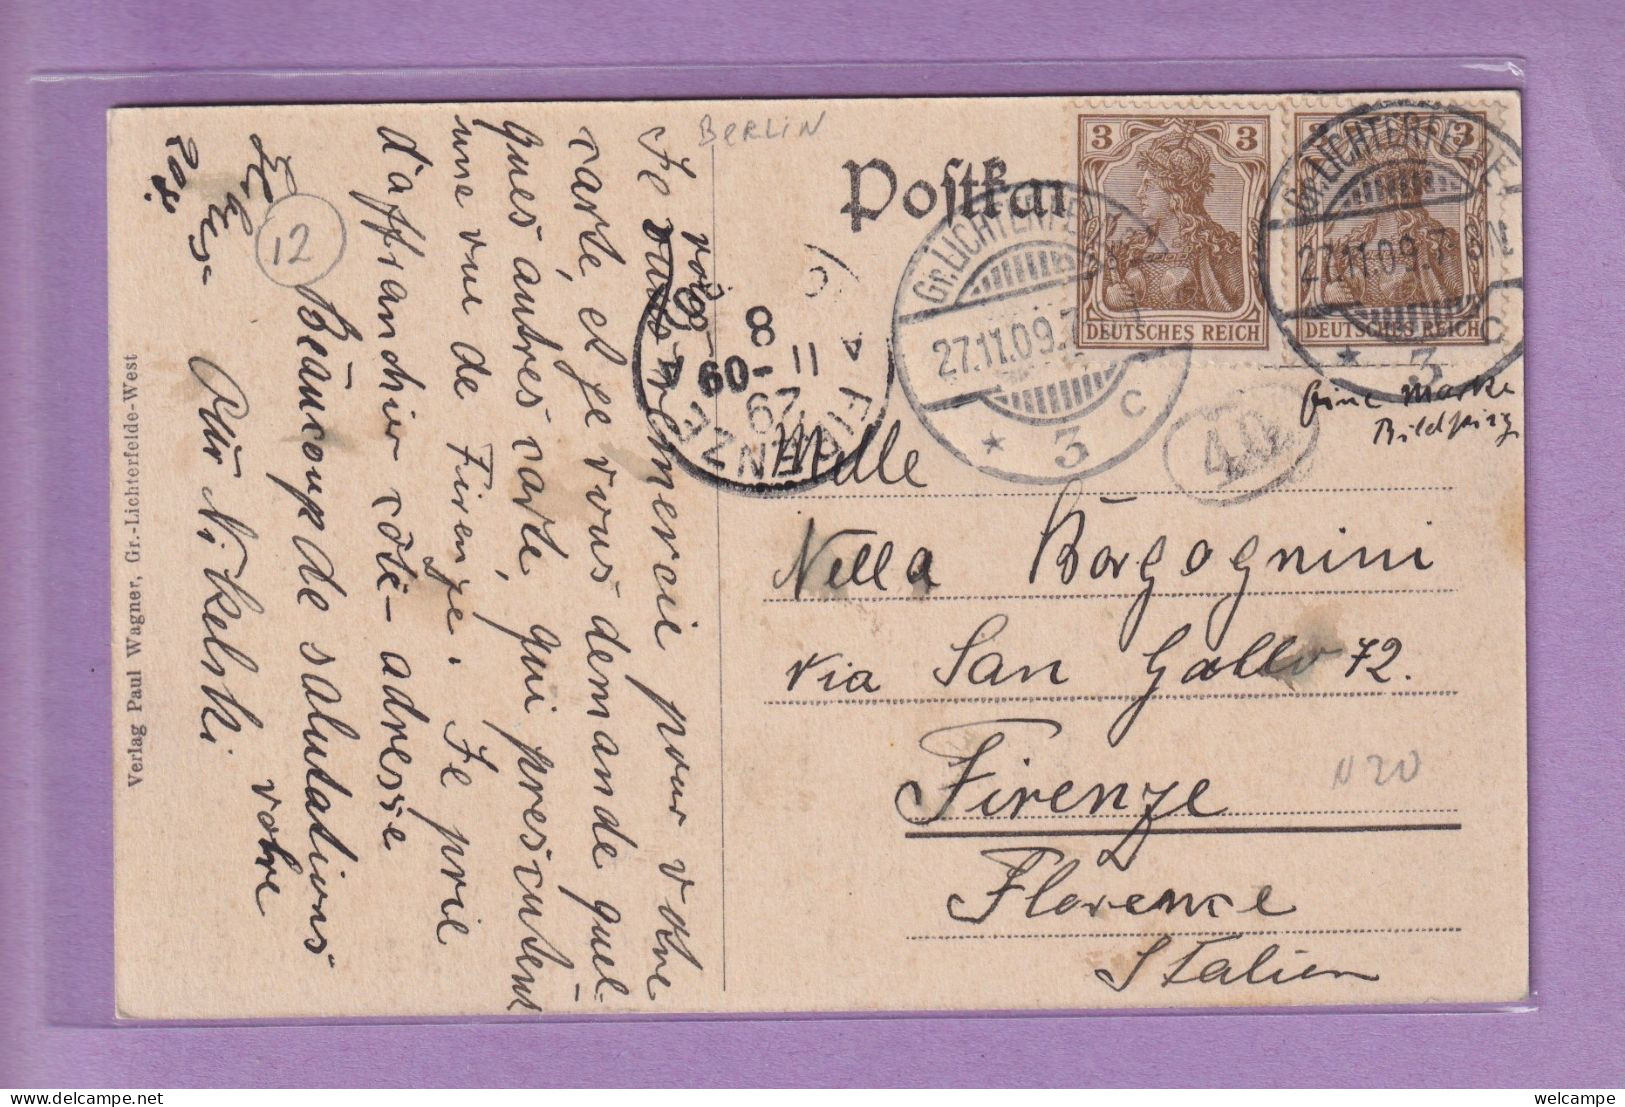 BERLIN
Postkar
3 3
DEUTSCHES REICH
3 3
DEUTSCHES REICH
Gr. LICHTERFELDE
27.11.09.7
* 3 c
Gr. LICHTERFELDE
27.11.09.7-8N.
* 3 c
FIRENZE
Eine Marke
Bildseitig
Melle
Nella Borgognini
via San Gallo 72.
Firenze
Florence
Italien
N20
12
Je vous remercie pour votre
carte, et je vous demande quel-
ques autres carte, qui presentent
une vue de Firenze. Je prie
d'affranchir côté-adresse
Beaucoup de salutations
votre
Otto Nikelski
Verlag Paul Wagner, Gr.-Lichterfelde-West